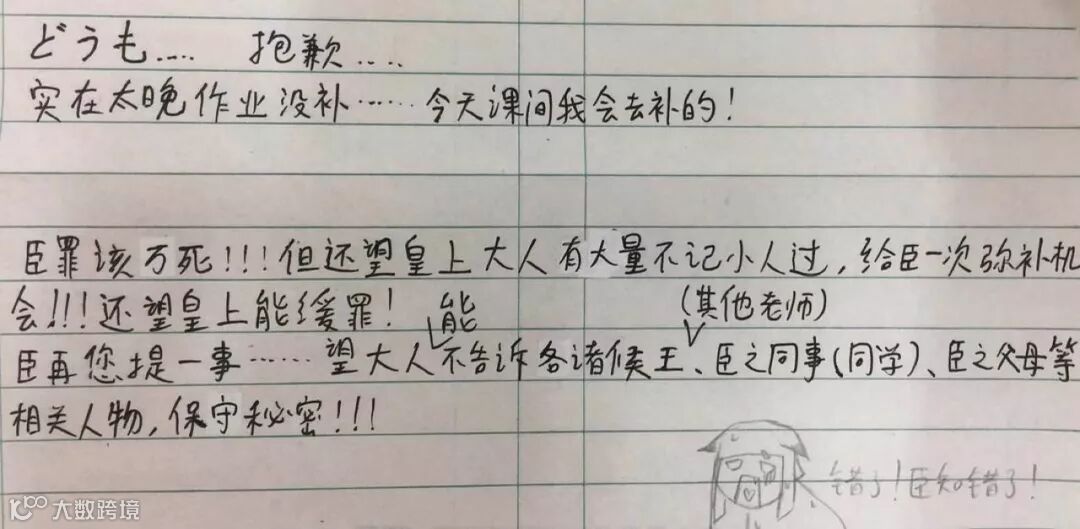 どうも.... 抱歉....
实在太晚作业没补……今天课间我会去补的！
臣罪该万死！！！但还望皇上大人有大量不记小人过，给臣一次弥补机
会！！！还望皇上能缓罪！
能 (其他老师)
臣再您提一事……望大人不告诉各诸候王、臣之同事(同学)、臣之父母等
相关人物，保守秘密！！！
错了！臣知错了！
大数跨境